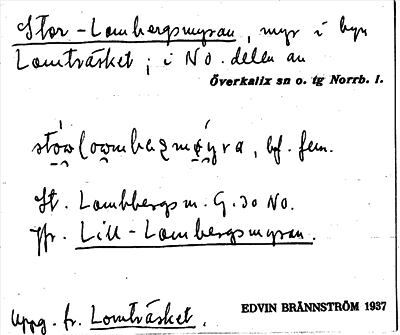 Stor-Lombergsmyran, myr i byn
Lomträsket; i NO. delen av
Överkalix sn o. tg Norrb. l.
bf. fem.
St. Lombbergsm. G. 30 NO.
Jfr. Lill-Lombergsmyran.
Uppg. fr. Lomträsket.
EDVIN BRÄNNSTRÖM 1937